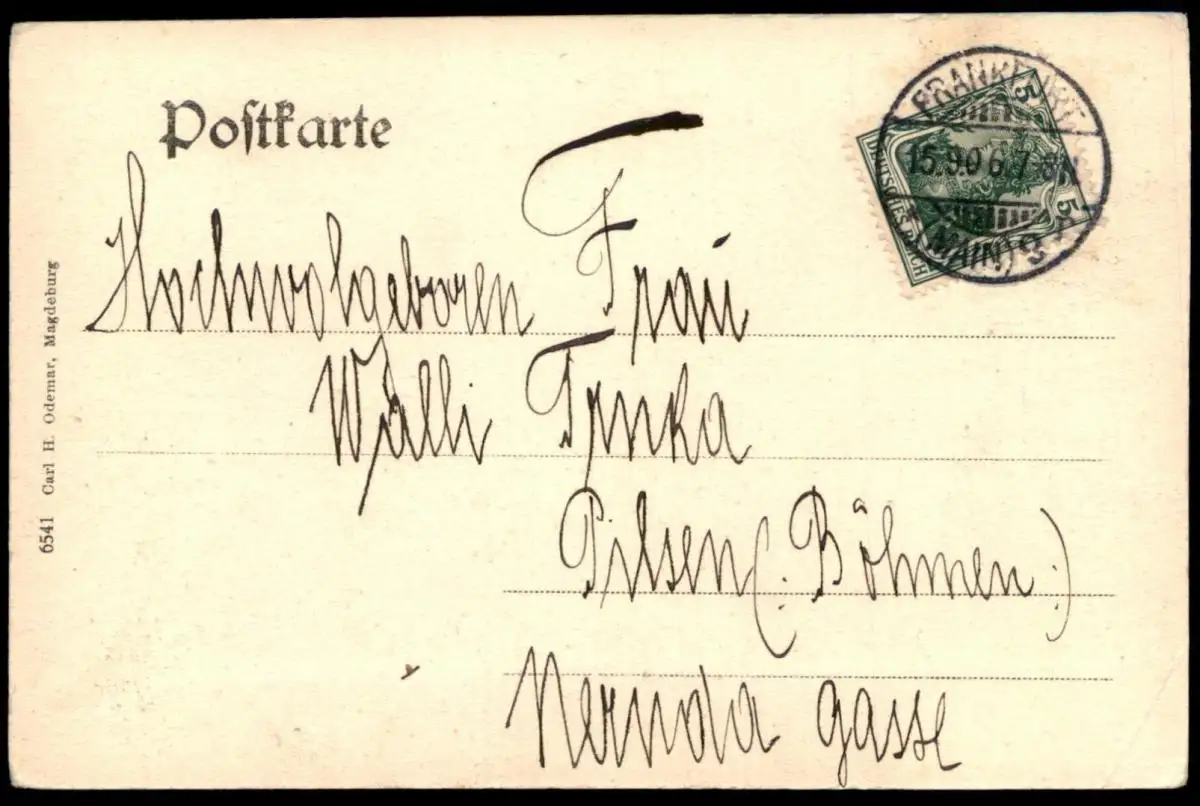 Postkarte
FRANKFURT
15.9.06.7-8N
(MAIN)
5
5
DEUTSCHES REICH
Hochwolgeboren Frau
Walli Trnka
Pilsen (: Böhmen :)
Neruda gasse
6541 Carl H. Odemar, Magdeburg